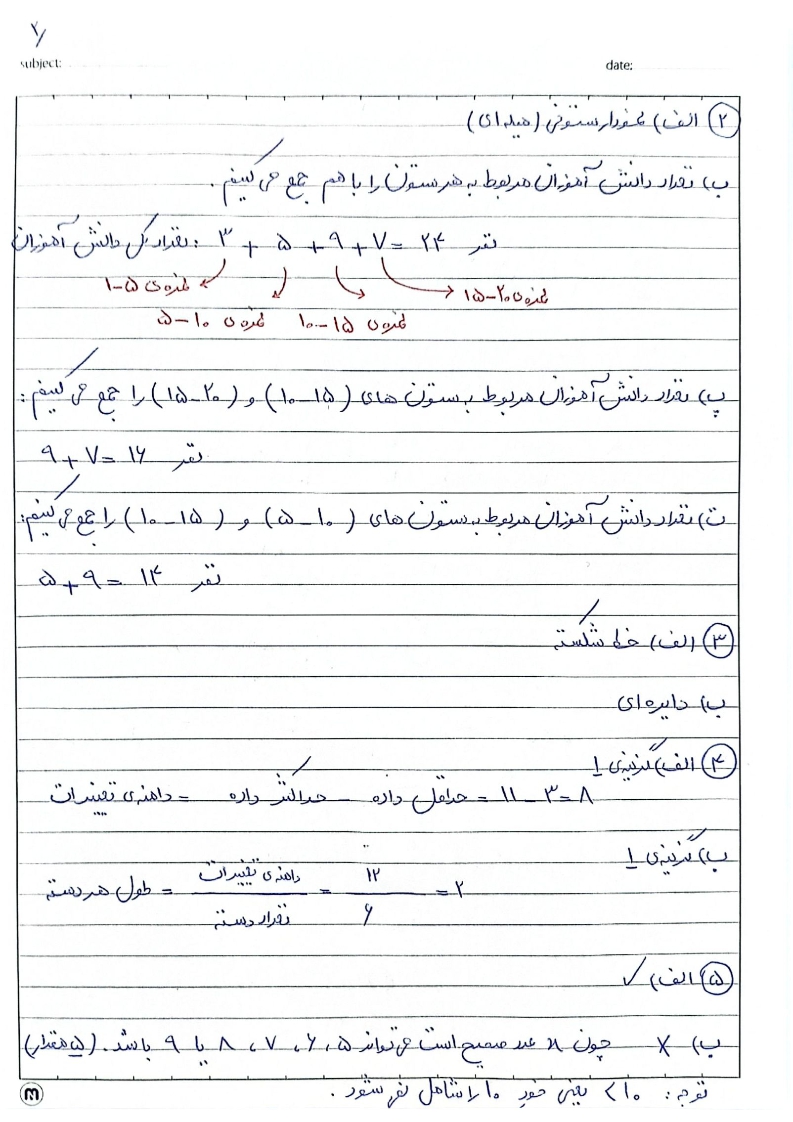 ۲/
subject:
date:
۲ الف) نمودار ستونی (میله‌ای)
ب) تعداد دانش آموزان مربوط به هر ستون را با هم جمع می کنیم.
تعداد کل دانش آموزان: ۳ + ۵ + ۹ + ۷ = ۲۴ نفر
نمره‌ی ۵-۱
نمره‌ی ۲۰-۱۵
نمره‌ی ۱۰-۵
نمره‌ی ۱۵-۱۰
پ) تعداد دانش آموزان مربوط به ستون های (۱۵-۱۰) و (۲۰-۱۵) را جمع می کنیم:
۹ + ۷ = ۱۶ نفر
ت) تعداد دانش آموزان مربوط به ستون های (۱۰-۵) و (۱۵-۱۰) را جمع می کنیم:
۵ + ۹ = ۱۴ نفر
۳ الف) خط شکسته
ب) دایره ای
۴ الف) گزینه‌ی ۱
دامنه‌ی تغییرات = حداکثر داده - حداقل داده = ۱۱ - ۳ = ۸
ب) گزینه‌ی ۱
طول هر دسته = دامنه‌ی تغییرات / تعداد دسته = ۱۲ / ۶ = ۲
۵ الف) ✓
ب) ✗ چون x عدد صحیح است می تواند ۵، ۶، ۷، ۸ یا ۹ باشد. (۵ مقدار)
توجه: ۱۰> یعنی خود ۱۰ را شامل نمی شود.
m